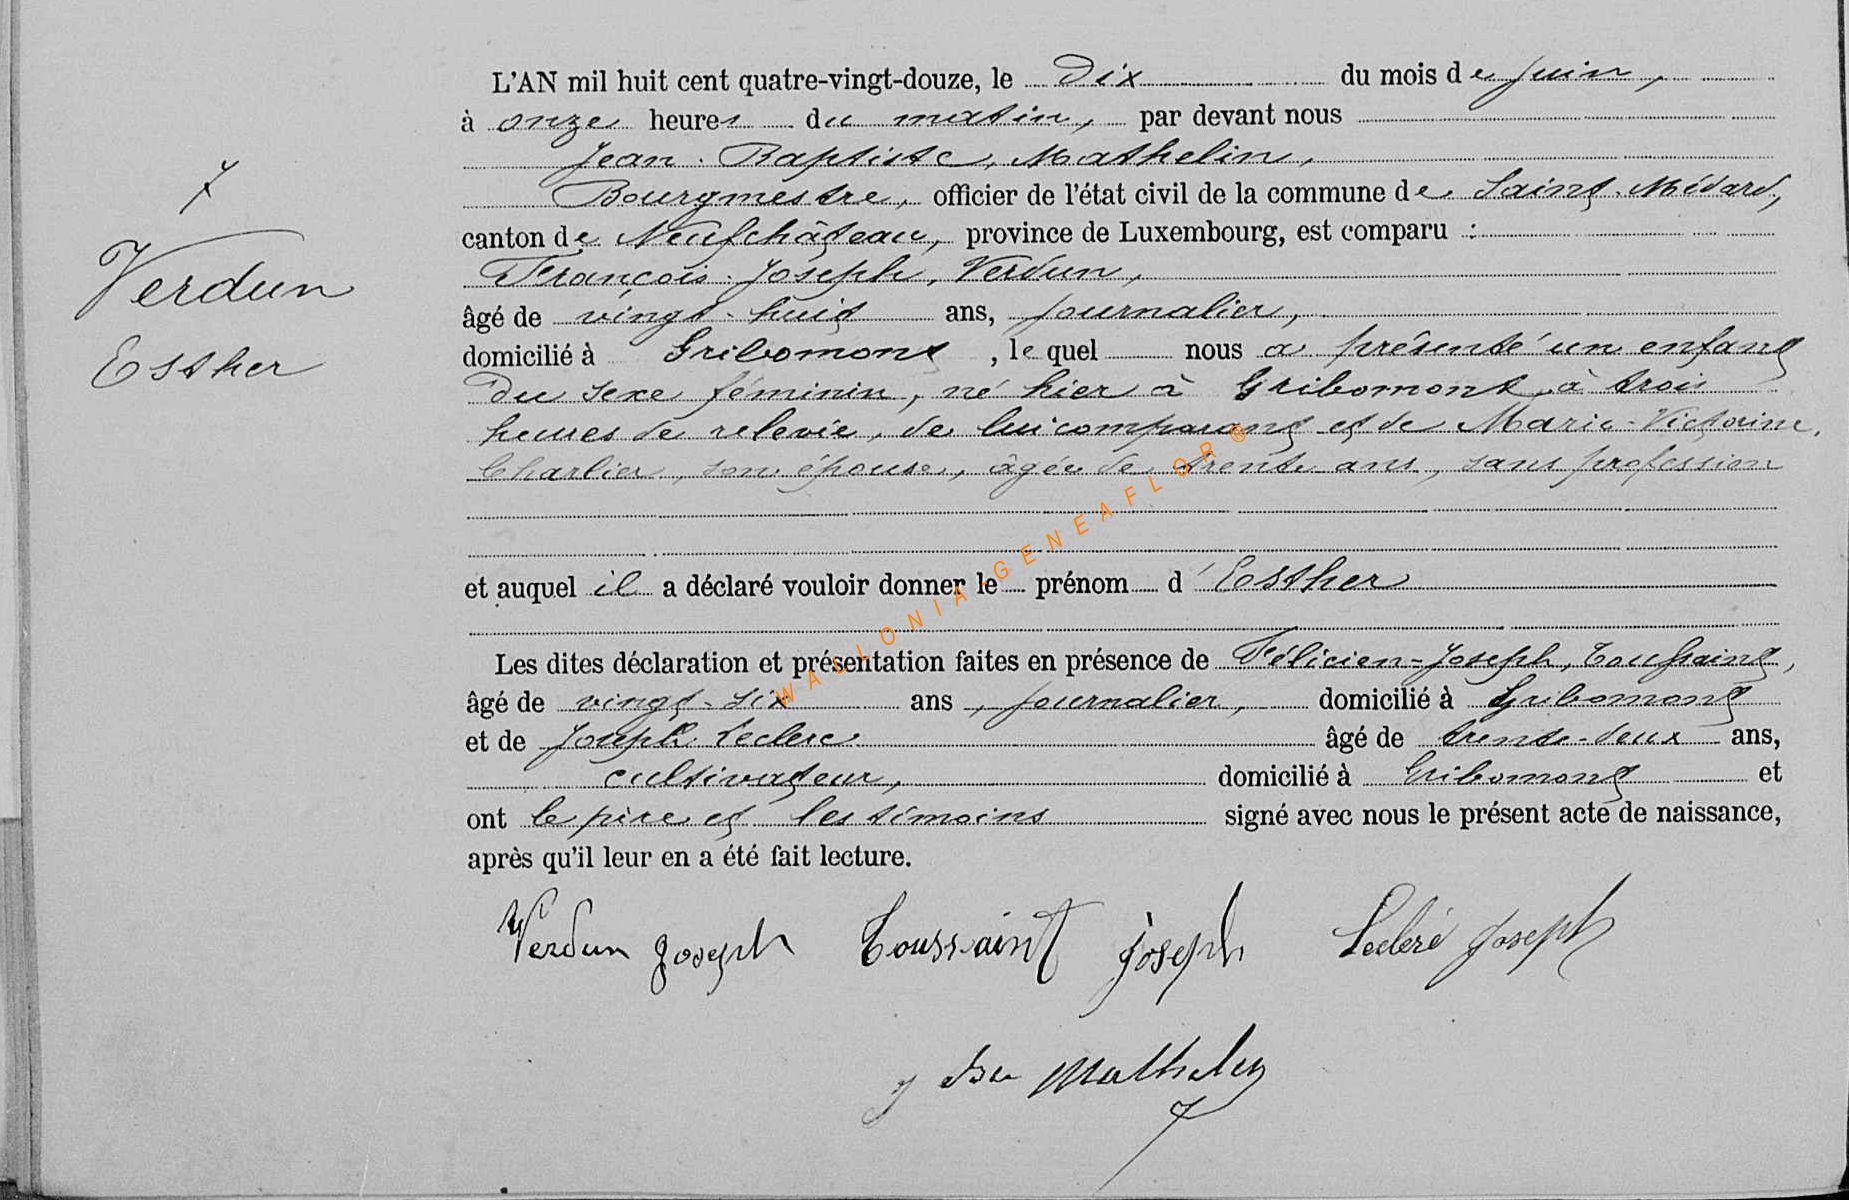 L'AN mil huit cent quatre-vingt-douze, le Dix du mois de juin,
à onze heures du matin, par devant nous
Jean-Baptiste, Mathelin,
Bourgmestre, officier de l'état civil de la commune de Saint-Médard,
canton de Neufchâteau, province de Luxembourg, est comparu :
François-Joseph, Verdun,
âgé de vingt-huit ans, journalier,
domicilié à Gribomont, lequel nous a présenté un enfant
du sexe féminin, né hier à Gribomont, à trois
heures de relevée, de lui comparant et de Marie-Victorine,
Charlier, son épouse, âgée de trente ans, sans profession
et auquel il a déclaré vouloir donner le prénom d'Esther
Les dites déclaration et présentation faites en présence de Félicien-Joseph, Toussaint,
âgé de vingt-six ans, journalier, domicilié à Gribomont
et de Joseph Leclere âgé de trente-deux ans,
cultivateur, domicilié à Gribomont et
ont le père et les témoins signé avec nous le présent acte de naissance,
après qu'il leur en a été fait lecture.
Verdun Joseph Toussaint Joseph Lecleré Joseph
J Bte Mathelin
Verdun
Esther
WALLONIA-GENEAFLOR ®